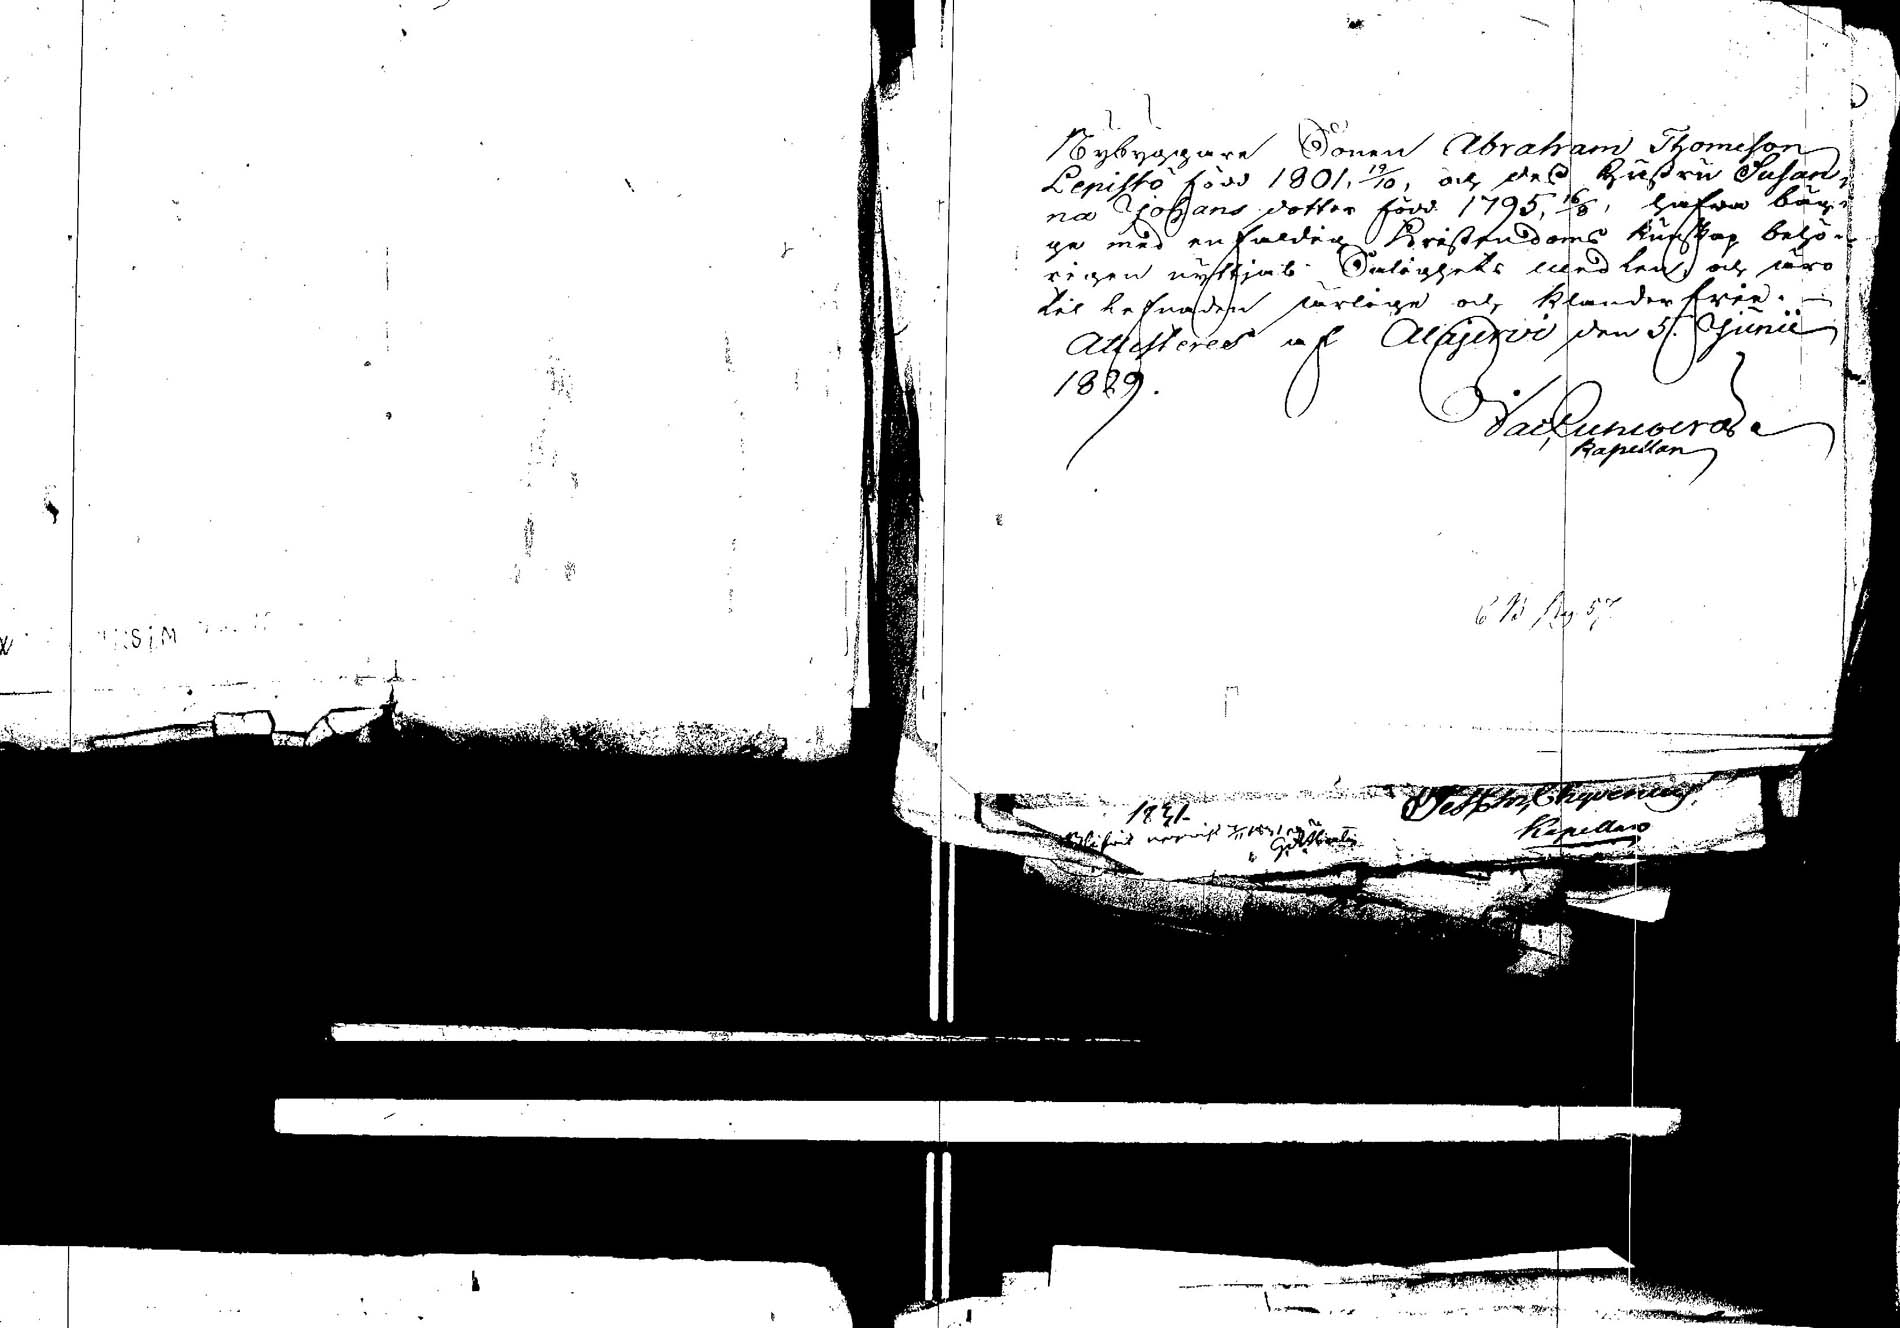 Nybyggare Sonen Abraham Thomeson
Lepistö född 1801, 19/10, och des Hustru Susan-
na Johans dotter född 1795, 16/8, hafva bäg-
ge med enfaldig Kristendoms kunskap behö-
rigen nyttjat Salighets medlen, och äro
til lefnaden ärlige och klanderfrie.
Attesteres af Alajervi den 5. Junii
1829.
Kapellan
57
1831
Kapellan